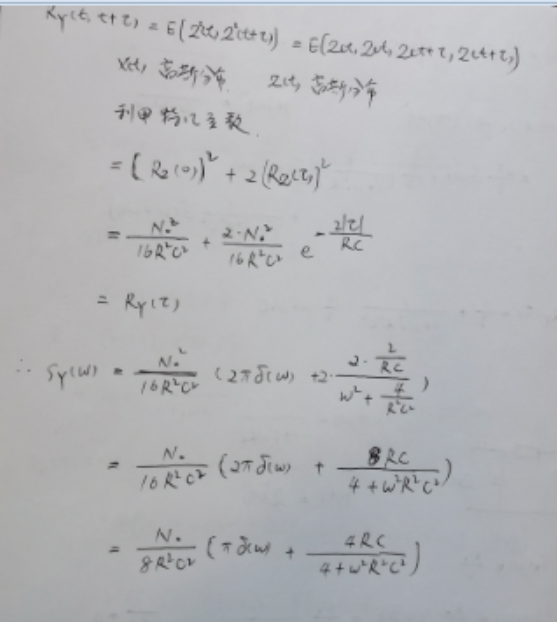 Ry(t, t+τ) = E(Z²(t) Z²(t+τ)) = E(Z(t) Z(t) Z(t+τ) Z(t+τ))
X(t) 高斯分布 Z(t) 高斯分布
利用特征函数
= (Rz(0))² + 2(Rz(τ))²
= N₀²/16R²C² + 2·N₀²/16R²C² e^(-2|τ|/RC)
= Ry(τ)
∴ Sy(w) = N₀²/16R²C² (2πδ(w) + 2·(2·2/RC)/(w² + 4/R²C²))
= N₀/16R²C² (2πδ(w) + 8RC/(4+w²R²C²))
= N₀/8R²C² (πδ(w) + 4RC/(4+w²R²C²))